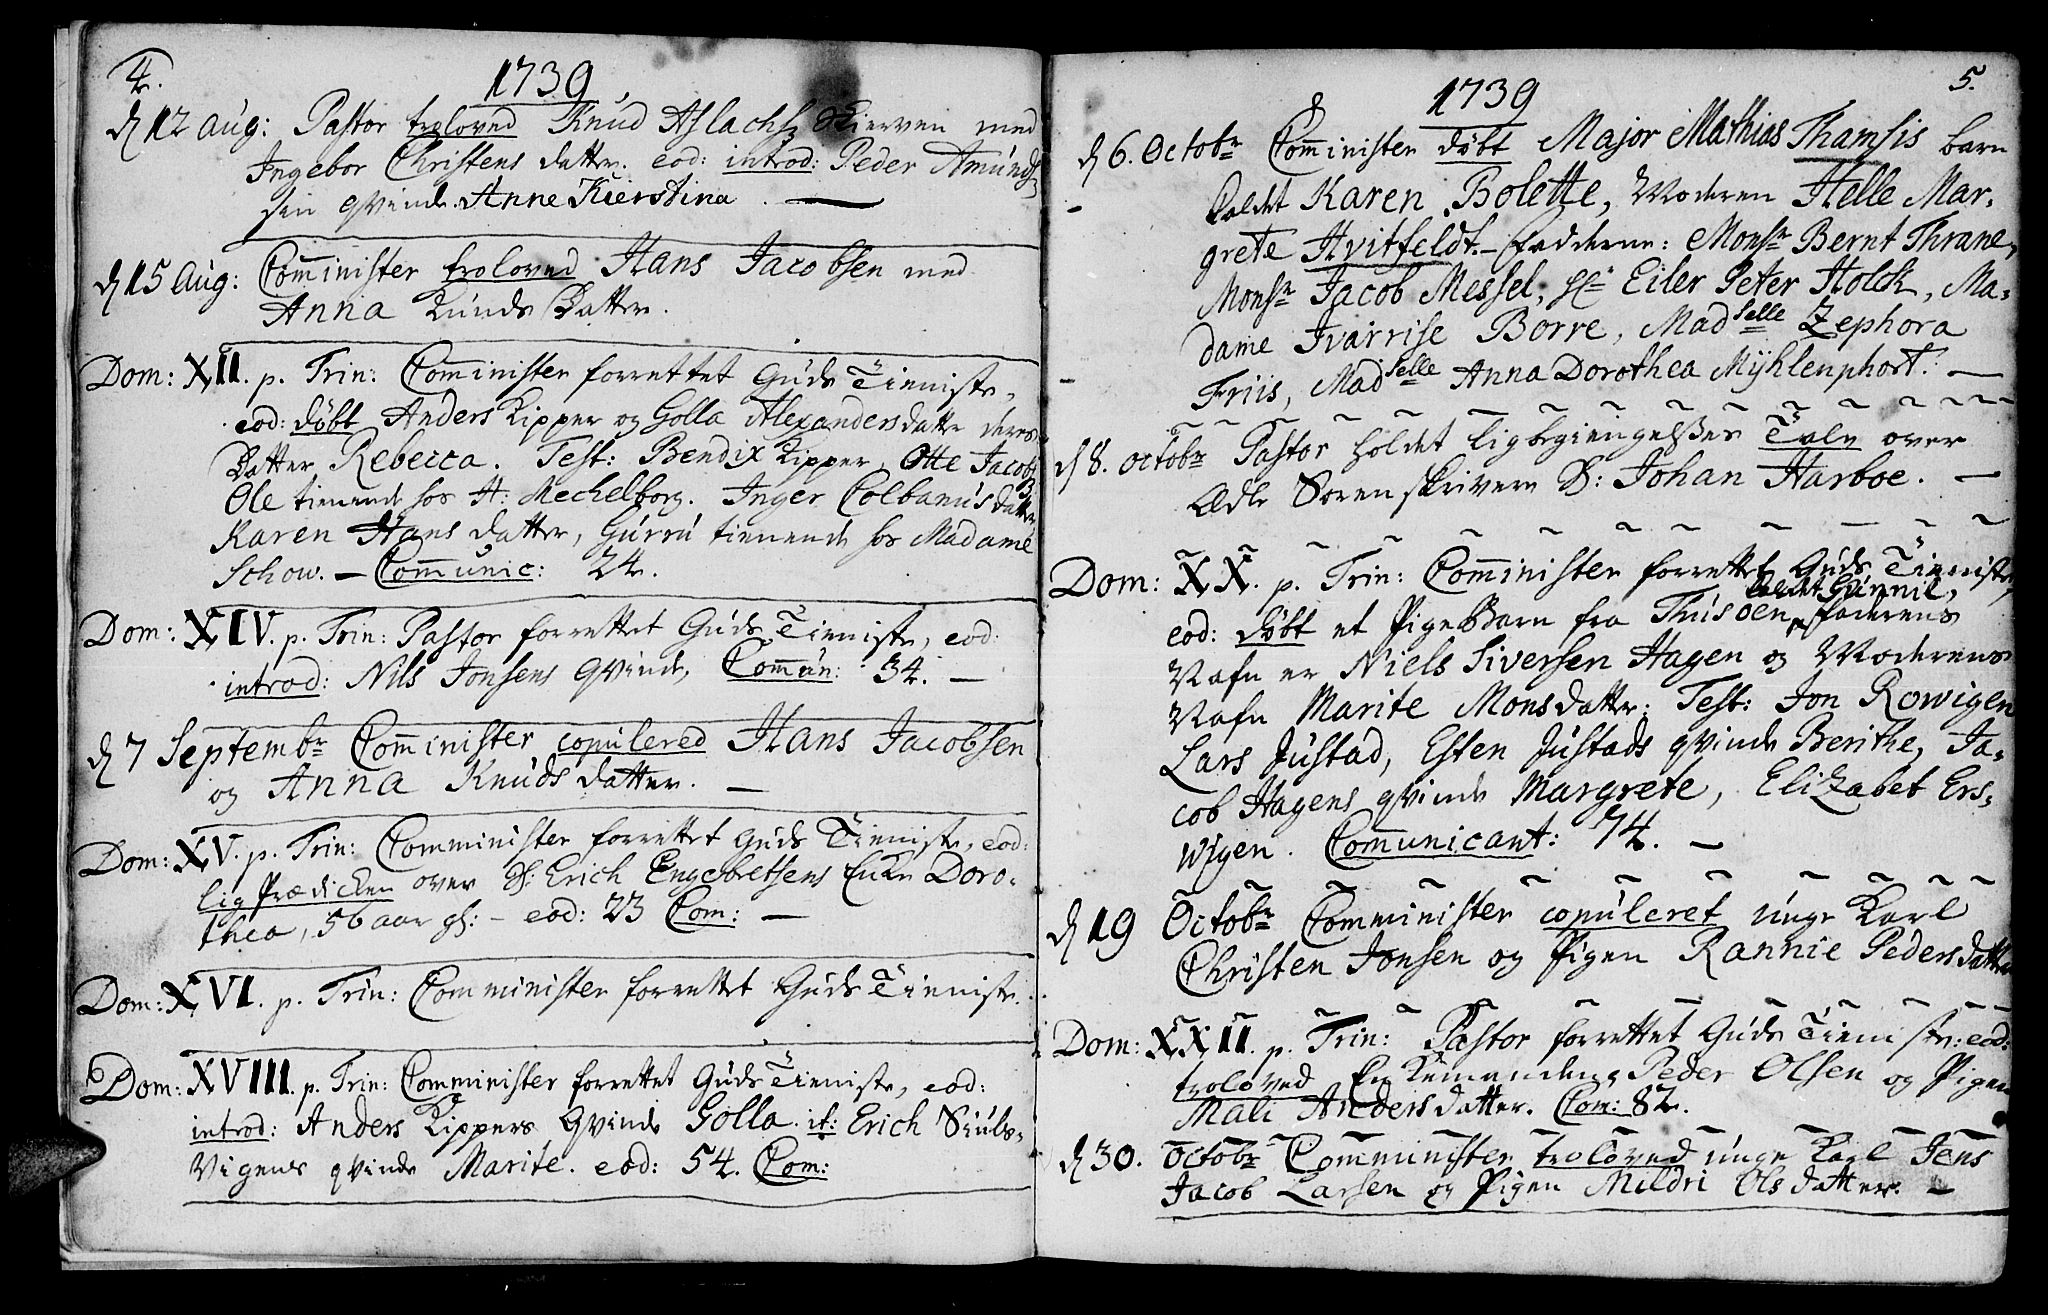 4.
1739.
d 12 Aug: Pastor troloved Knud Aslachs Skierven med
Ingebor Christens datter. eod: introd: Peder Amunds
sin qvinde. Anne Kierstina. —
d 15 Aug: Comminister troloved Hans Jacobsen med
Anna Knuds Datter.
Dom: XII. p. Trin: Comminister forrettet Guds Tieniste,
eod: døbt Anders Kipper og Golla Alexandersdatter deres
Datter Rebecca. Test: Bendix Kipper, Otte Jacobs
Ole tienende hos H: Mechelborg. Inger Colbanusdatter
Karen Hans datter, Gurru tienende hos Madame
Schow. — Communic: 24.
Dom: XIV. p. Trin: Pastor forrettet Guds Tieniste, eod:
introd: Nils Jonsens qvinde, Commun: 34. —
d 7 Septembr Comminister copulered Hans Jacobsen
og Anna Knuds datter. —
Dom: XV. p. Trin: Comminister forrettet Guds Tieniste, eod:
lig Prædicken over S: Erich Engebretsens Enke Doro-
thea, 56 aar gl: — eod: 23 Com: —
Dom: XVI. p. Trin: Comminister forrettet Guds Tieniste.
Dom: XVIII. p. Trin: Comminister forrettet Guds Tieniste, eod:
introd: Anders Kippers Qvinde Golla. it: Erich Siuls-
Vigens qvinde Marite. eod: 54. Com:
5.
1739
d 6. Octobr Comminister døbt Major Mathias Thamsis barn
kaldet Karen Bolette, Moderen Helle Mar-
grete Hvitfeldt. — Fadderne: Monsr Bernt Thrane,
Monsr Jacob Messel, Eiler Peter Holck, Ma-
dame Ivarrise Borre, Madselle Zephora
Friis, Madselle Anna Dorothea Mÿhlenphort. —
d 8. octobr Pastor holdet ligbegiengelses Tale over
Ædle Sorenskriver S: Johan Harboe. —
Dom: XX. p. Trin: Comminister forrettet Guds Tieniste,
kaldet Gunnil,
eod: døbt et PigeBarn fra Thisøen, Faderens
Nafn er Niels Siversen Hagen og Moderens
Nafn Marite Monsdatter. Test: Jon Rowigen
Lars Justad, Esten Justads qvinde Berithe, Ja-
cob Hagens qvinde Margrete, Elizabet Ers-
wigen. Communicant: 74. —
d 19 Octobr Comminister copuleret unge Karl
Christen Jonsen og Pigen Rannie Pedersdatter
Dom: XXII. p. Trin: Pastor forrettet Guds Tieniste: eod:
troloved Enkemanden Peder Olsen og Pigen
Mali Andersdatter. Com: 82.
d 30. octobr Comminister troloved unge Karl Jens
Jacob Larsen og Pigen Mildri Olsdatter. —